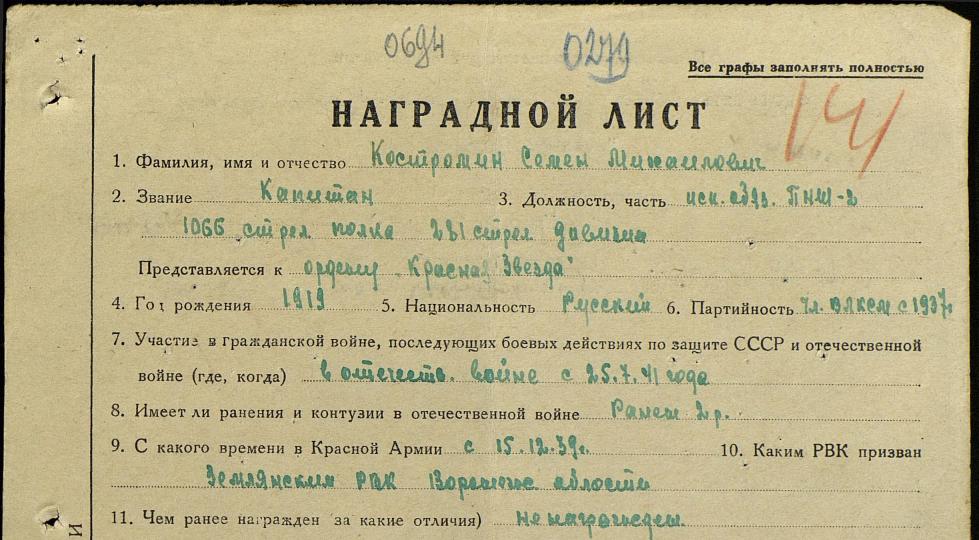 0694 0279
Все графы заполнять полностью
141
НАГРАДНОЙ ЛИСТ
1. Фамилия, имя и отчество Костромин Семен Михаилович
2. Звание Капитан 3. Должность, часть исп. обяз. ПНШ-2
1066 стрел полка 281 стрел дивизии
Представляется к ордену „Красная Звезда"
4. Год рождения 1919 5. Национальность Русский 6. Партийность чл. ВЛКСМ с 1937г
7. Участие в гражданской войне, последующих боевых действиях по защите СССР и отечественной
войне (где, когда) в отечеств. войне с 25.7.41 года
8. Имеет ли ранения и контузии в отечественной войне Ранен 2 р.
9. С какого времени в Красной Армии с 15.12.39г. 10. Каким РВК призван
Землянским РВК Воронеж области
11. Чем ранее награжден за какие отличия) не награжден.
И